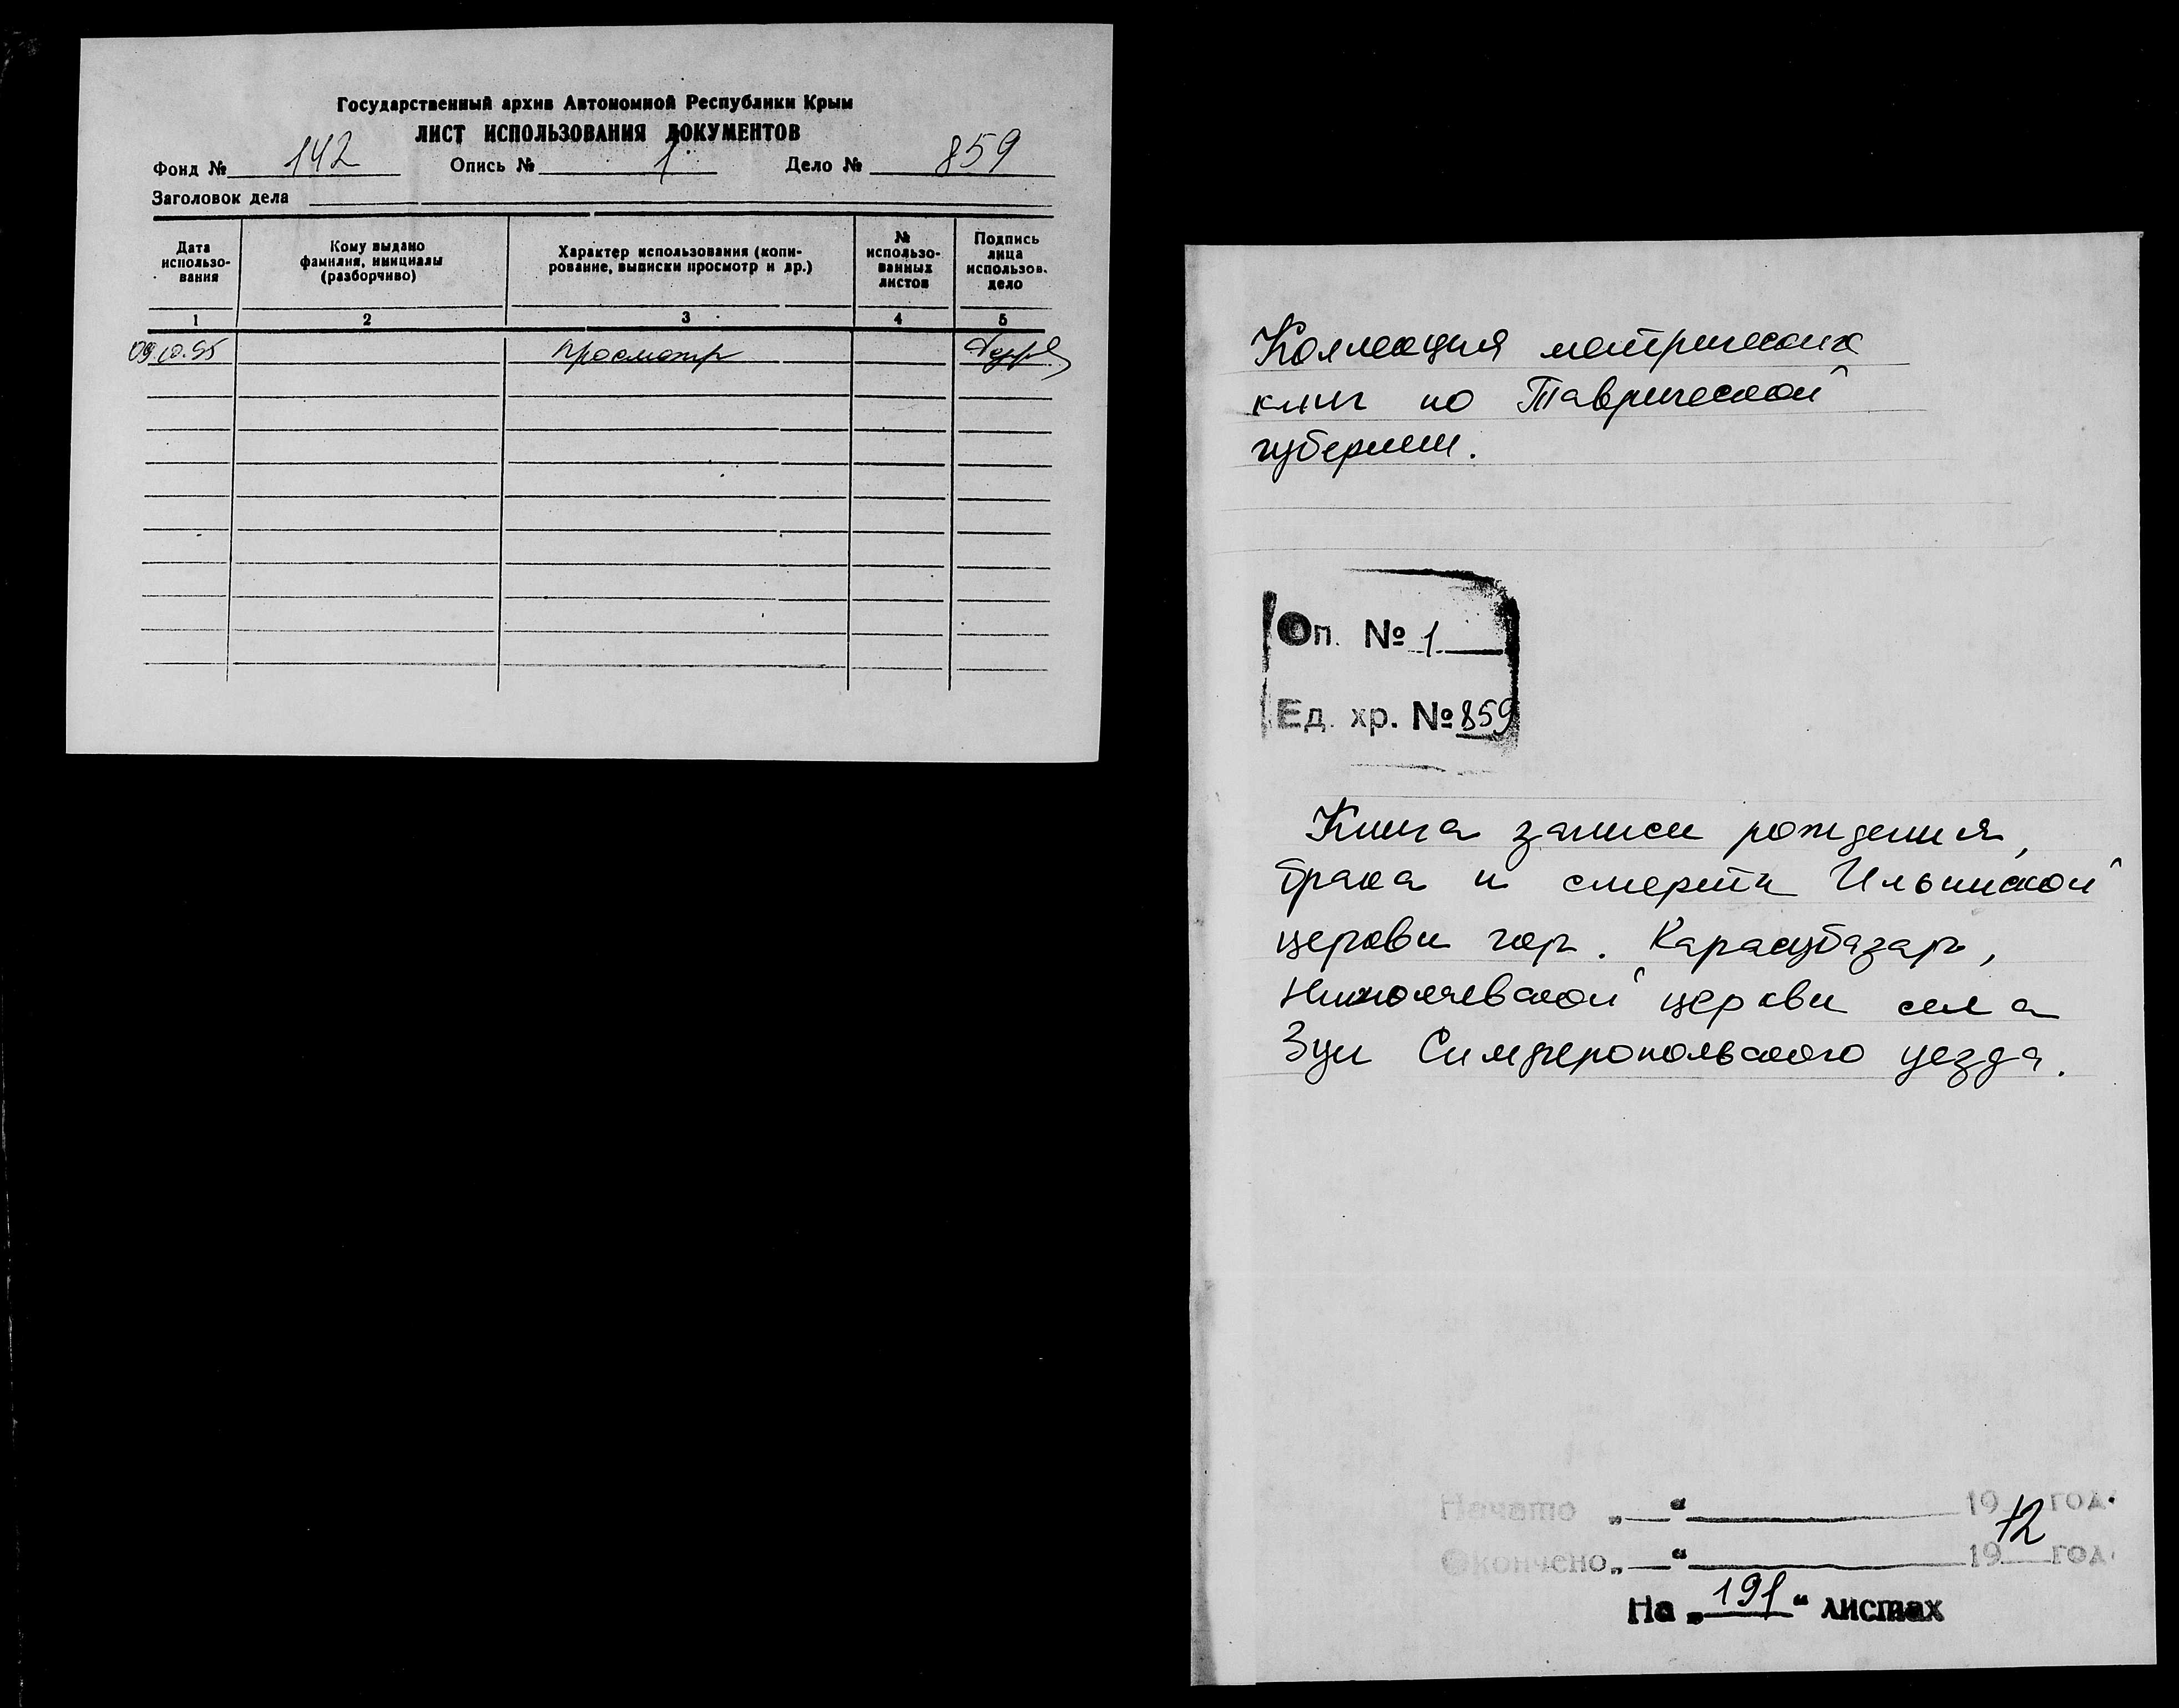 Государственный архив Автономной Республики Крым
ЛИСТ ИСПОЛЬЗОВАНИЯ ДОКУМЕНТОВ
Фонд № 142 Опись № 1 Дело № 859
Заголовок дела
Дата использо-вания
Кому выдано фамилия, инициалы (разборчиво)
Характер использования (копи-рование, выписки просмотр и др.)
№ использо-ванных листов
Подпись лица использов. дело
1 2 3 4 5
09.10.95 просмотр
Коллекция метрических
книг по Таврической
губернии.
Оп. № 1
Ед. хр. № 859
Книга записи рождения,
брака и смерти Ильинской
церкви гор. Карасубазар,
Николаевской церкви села
Зуи Симферопольского уезда.
Начато „ “ 19 год.
12
Окончено „ “ 19 год.
На „191“ листах